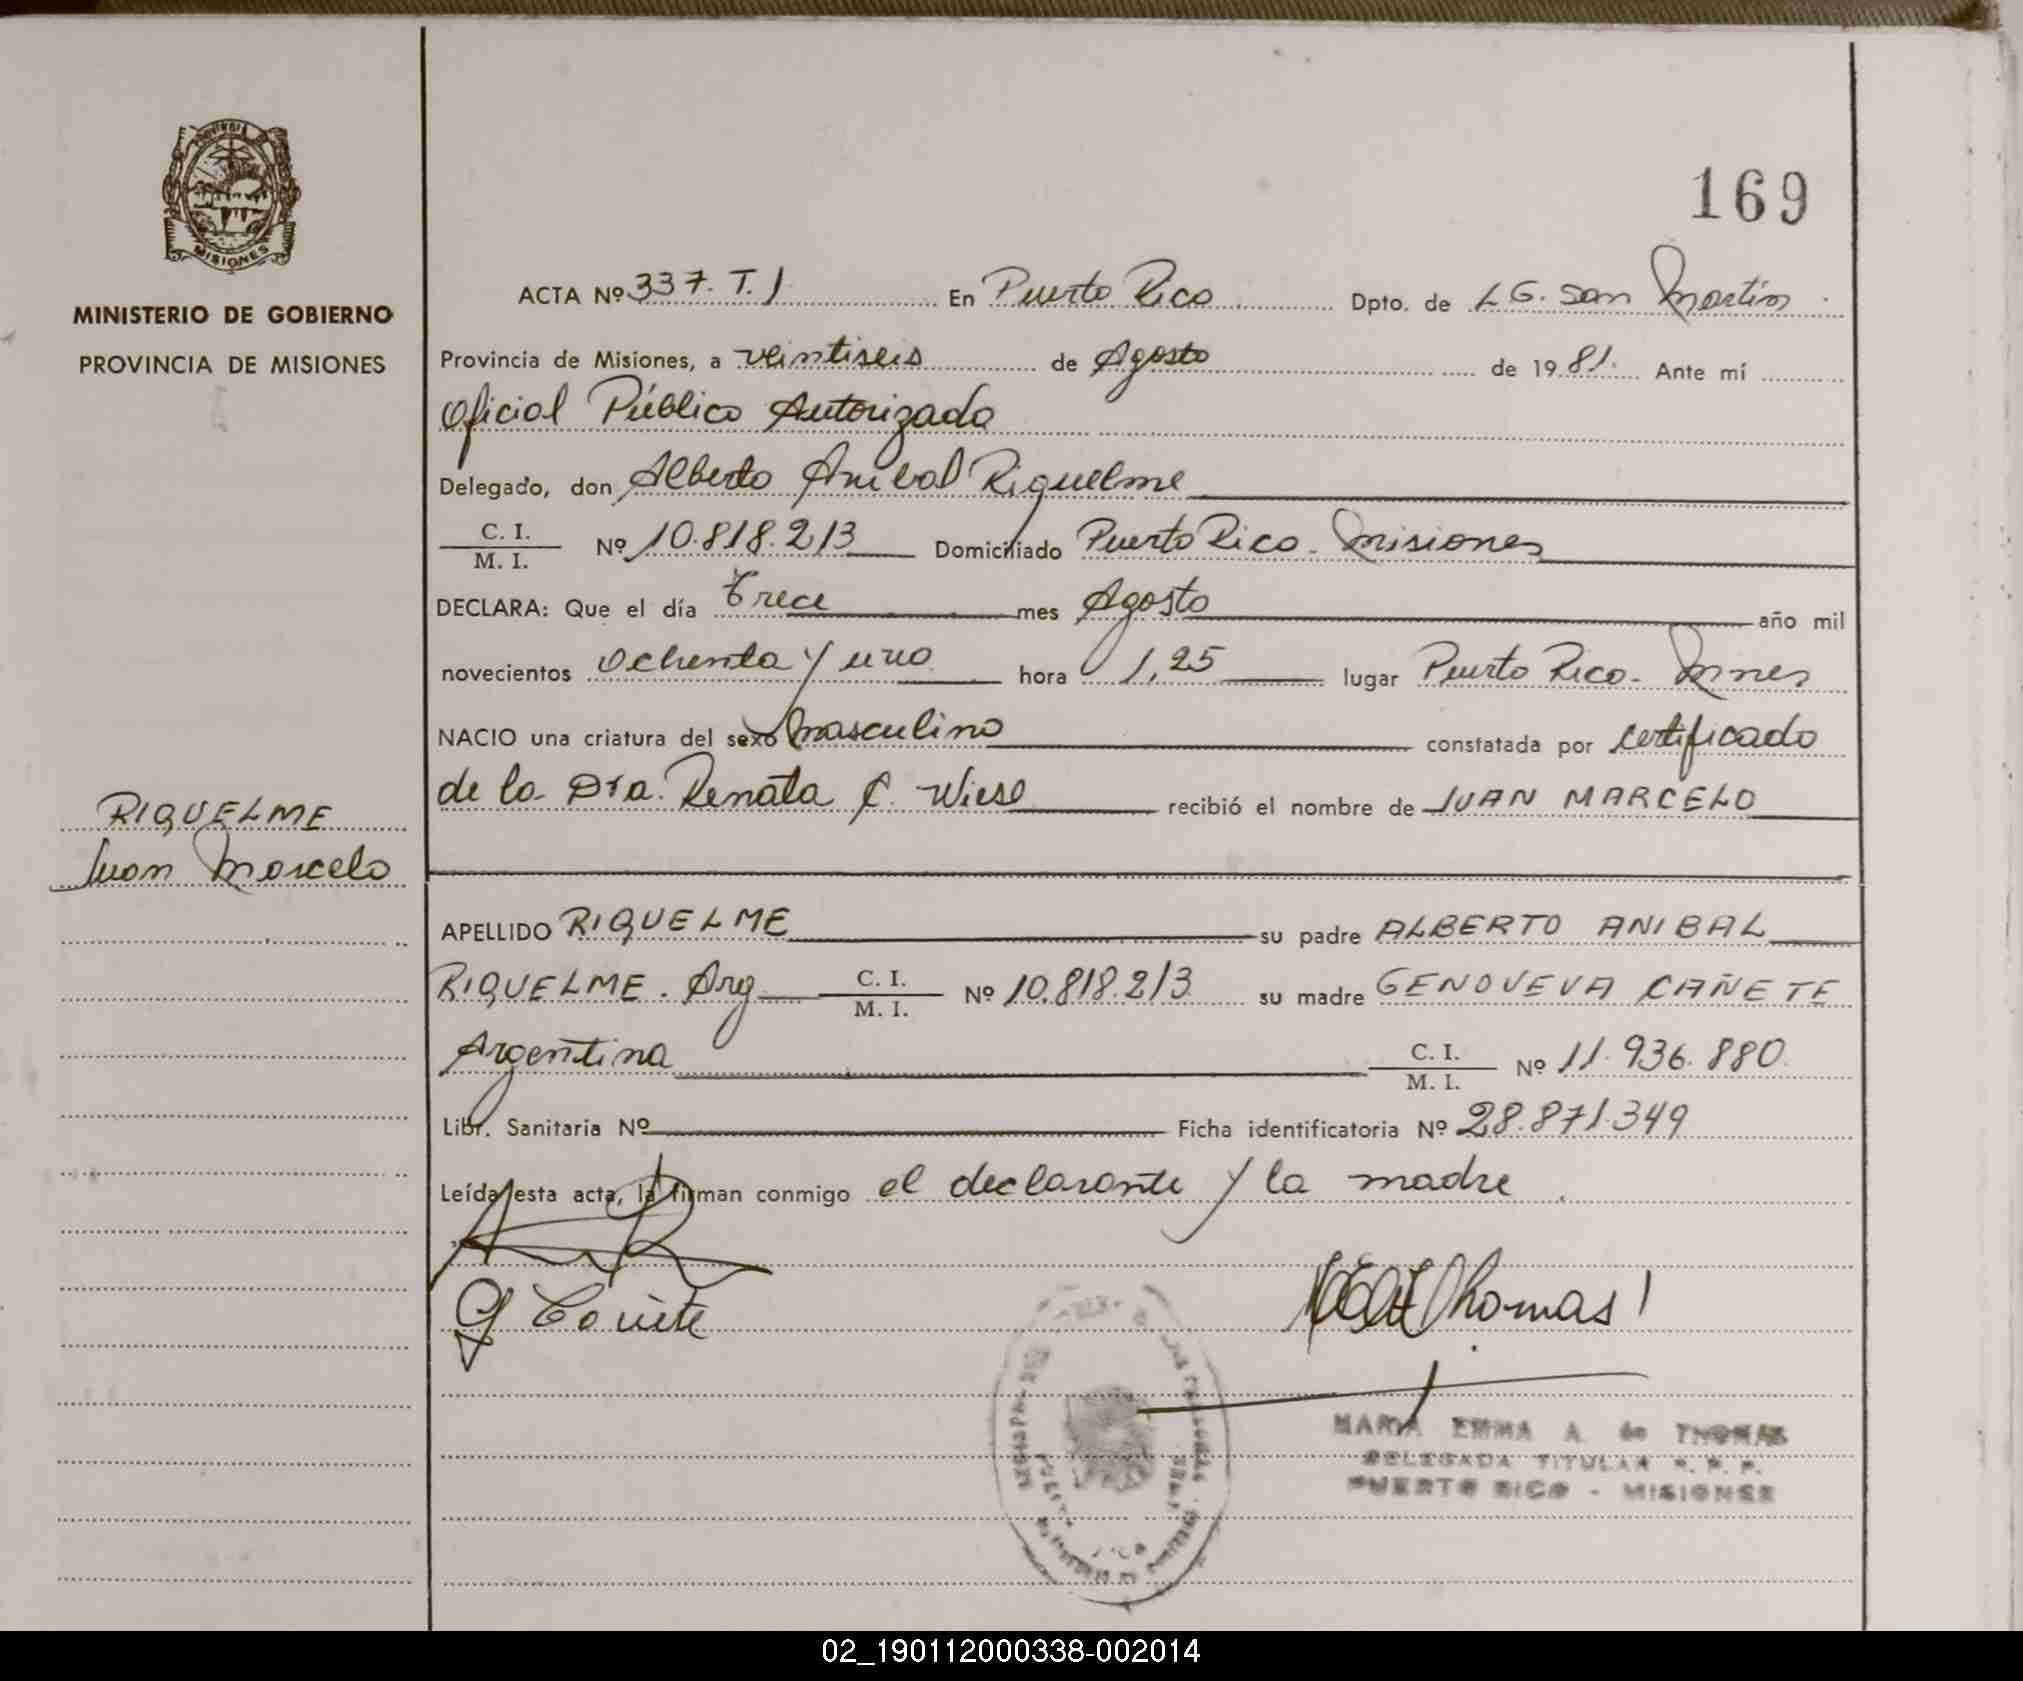 169
PROVINCIA DE
MISIONES
MINISTERIO DE GOBIERNO
PROVINCIA DE MISIONES
RIQUELME
Juan Marcelo
ACTA Nº 337. T. I En Puerto Rico Dpto. de L G. San Martín.
Provincia de Misiones, a veintiseis de Agosto de 1981. Ante mí
Oficial Público Autorizado
Delegado, don Alberto Anibal Riquelme
C. I.
M. I. Nº 10.818.213 Domiciliado Puerto Rico. Misiones
DECLARA: Que el día Trece mes Agosto año mil
novecientos ochenta y uno hora 1,25 lugar Puerto Rico. Mnes
NACIO una criatura del sexo masculino constatada por certificado
de la Dra. Renata C. Wiese recibió el nombre de JUAN MARCELO
APELLIDO RIQUELME su padre ALBERTO ANIBAL
RIQUELME. Arg C. I. M. I. Nº 10.818.213 su madre GENOVEVA CAÑETE
Argentina C. I. M. I. Nº 11.936.880
Libr. Sanitaria Nº Ficha identificatoria Nº 28.871.349
Leída esta acta, la firman conmigo el declarante y la madre.
G Cañete
Thomas
MARIA EMMA A. de THOMAS
DELEGADA TITULAR R. P. P.
PUERTO RICO - MISIONES
02_190112000338-002014